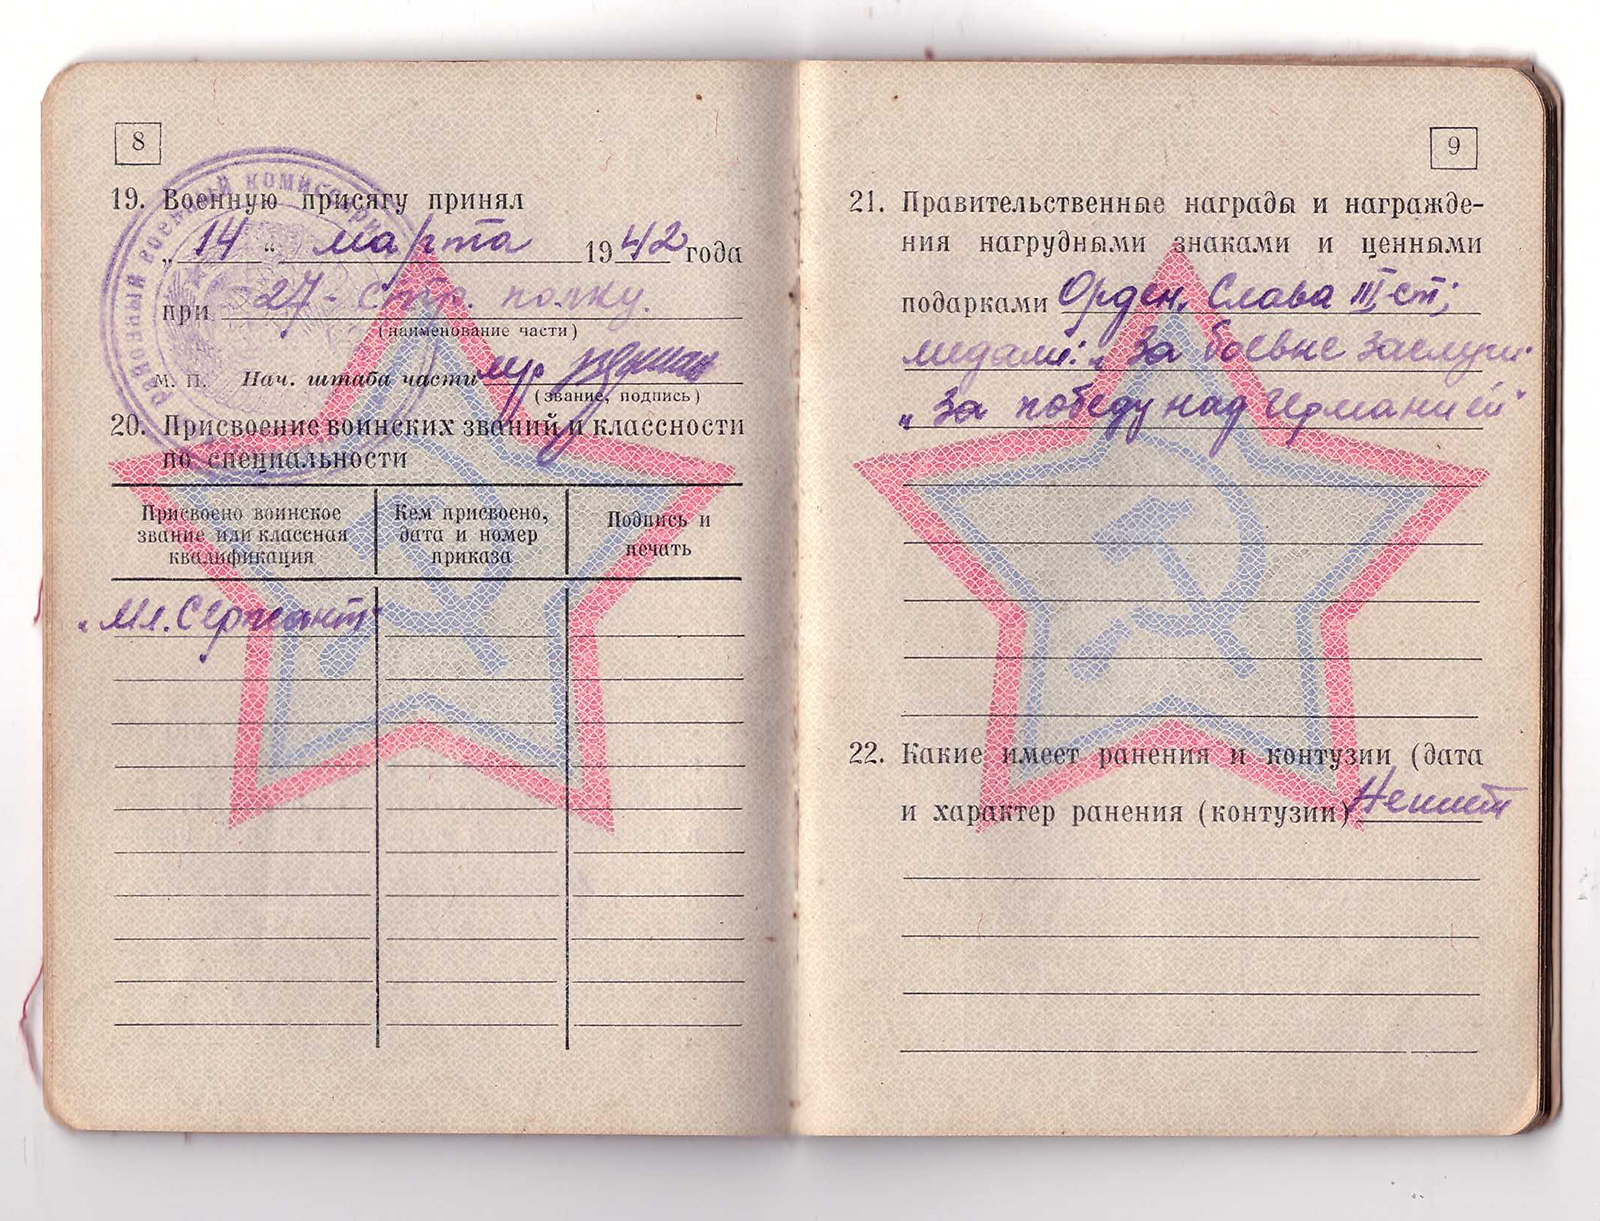 8
19. Военную присягу принял
„ 14 “ марта 1942 года
при 27- стр. полку.
(наименование части)
М. П. Нач. штаба части
(звание, подпись)
20. Присвоение воинских званий и классности
по специальности
Присвоено воинское
звание или классная
квалификация
Кем присвоено,
дата и номер
приказа
Подпись и
печать
„Мл. Сержант"
9
21. Правительственные награды и награжде-
ния нагрудными знаками и ценными
подарками Орден, Слава III ст;
медали: „За боевые заслуги"
„За победу над германией"
22. Какие имеет ранения и контузии (дата
и характер ранения (контузии) Неимет
военный комиссариат